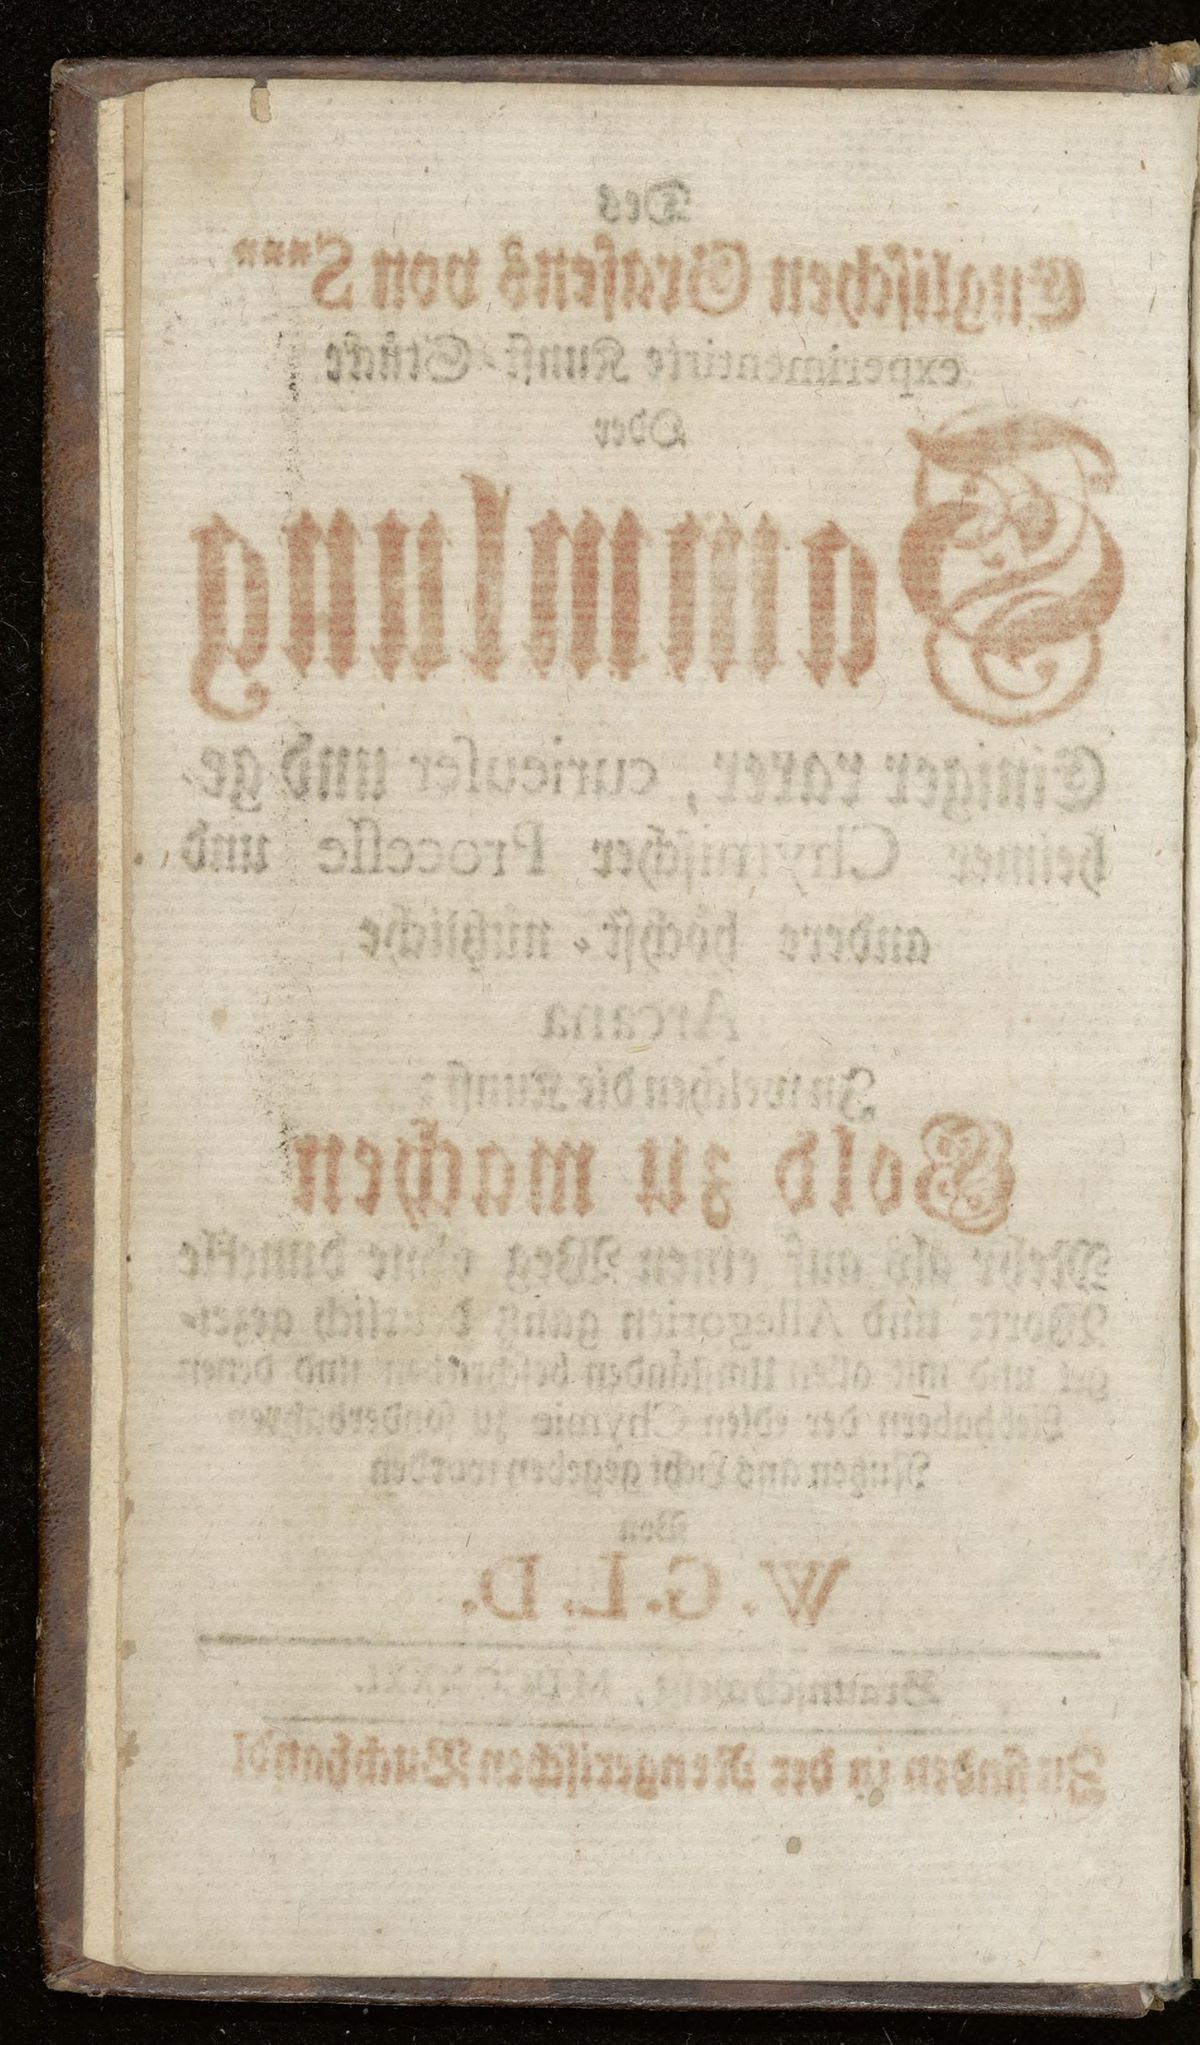 Des
Englischen Grafens von S***
experimentirte Kunst-Stücke
Oder
Sammlung
Einiger rarer, curieuser und ge-
heimer Chymischer Processe und
andere höchst-nützliche
Arcana
In welchen die Kunst:
Gold zu machen
Mehr als auf einen Weg ohne dunckle
Worte und Allegorien gantz deutlich gezei-
get und mit allen Umständen beschrieben und denen
Liebhabern der edlen Chymie zu sonderbahren
Nutzen ans Licht gegeben worden
Von
W. G. L. D.
Braunschweig, MDCCXXXI.
Zu finden in der Rengerischen Buchhandl